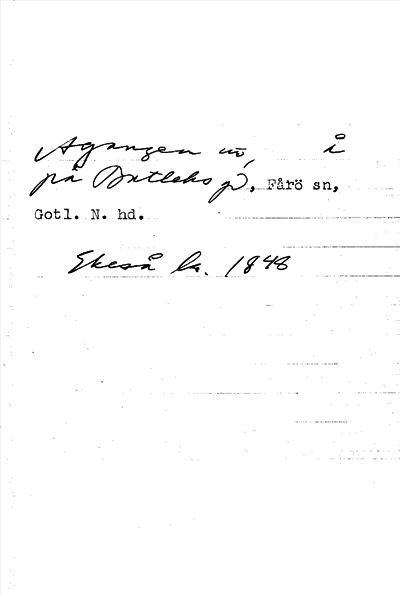 Ågangen nv, å
på Butleks gd, Fårö sn,
Gotl. N. hd.
Ekeså ka. 1848